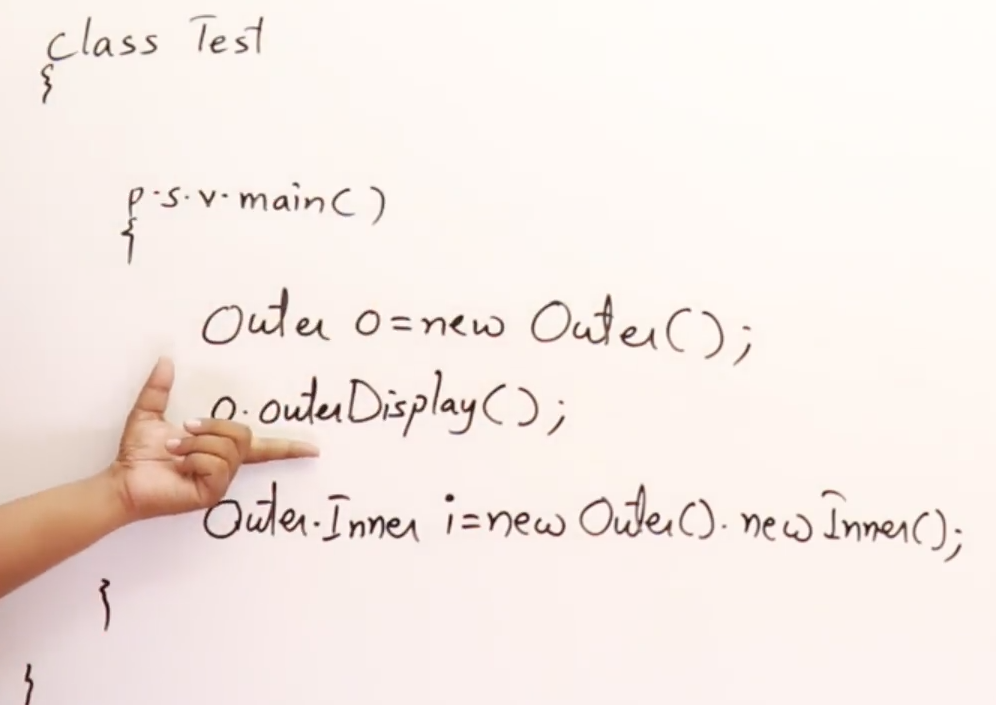 class Test
{
p.s.v.main()
{
Outer o=new Outer();
o.outerDisplay();
Outer.Inner i=new Outer().new Inner();
}
}